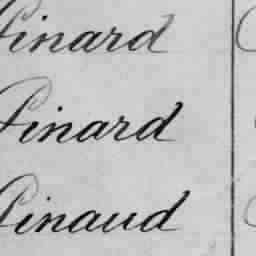 Pinard
Pinard
Pinaud